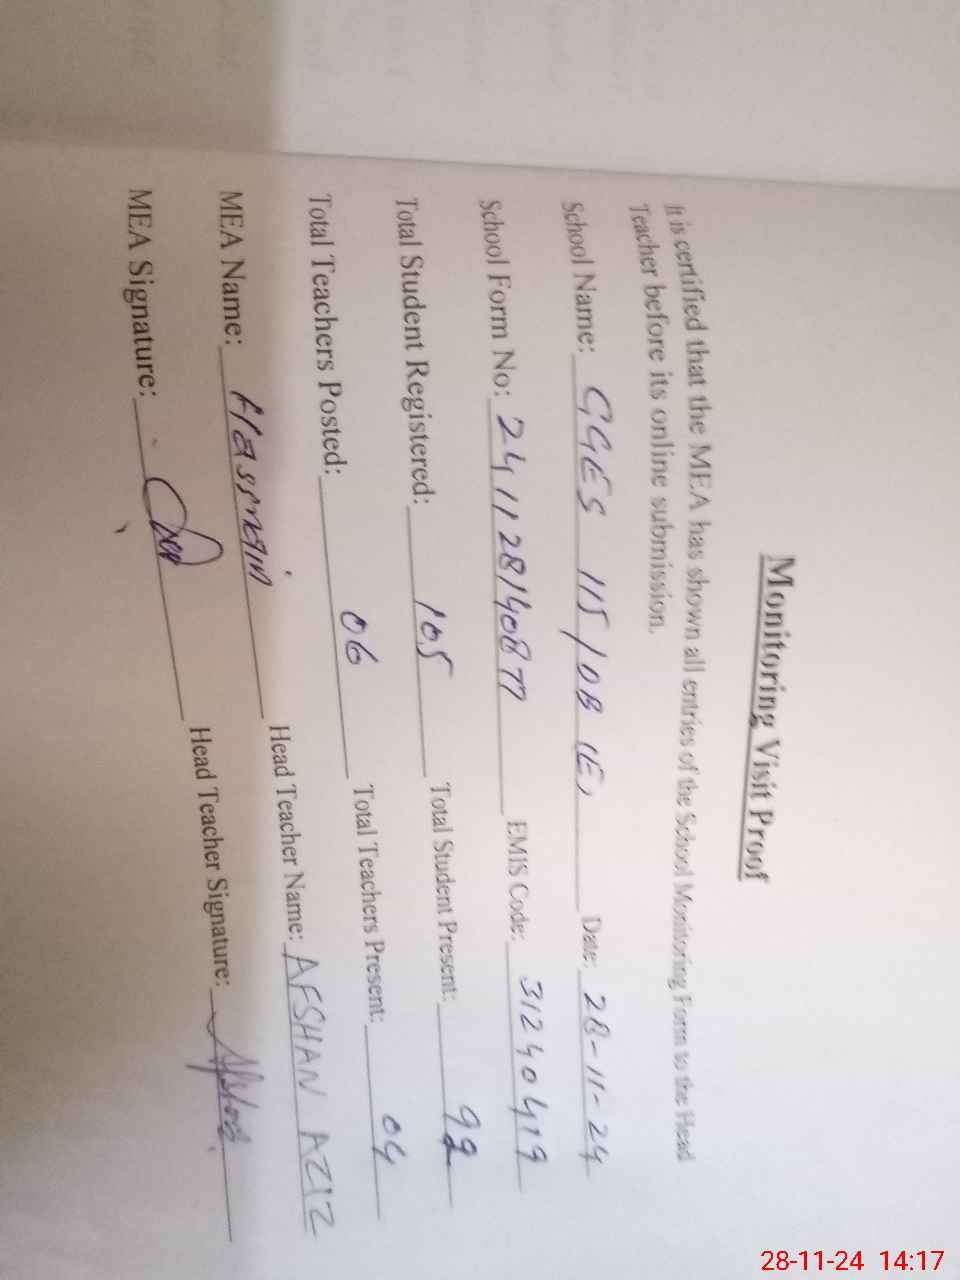 Monitoring Visit Proof
It is certified that the MEA has shown all entries of the School Monitoring Form to the Head
Teacher before its online submission.
School Name: GGES 115/10B (E) Date: 28-11-24
School Form No: 24112814087 EMIS Code: 31240419
Total Student Registered: 105 Total Student Present: 92
Total Teachers Posted: 06 Total Teachers Present: 04
MEA Name: Hassnain Head Teacher Name: AFSHAN AZIZ
MEA Signature: Head Teacher Signature:
28-11-24 14:17